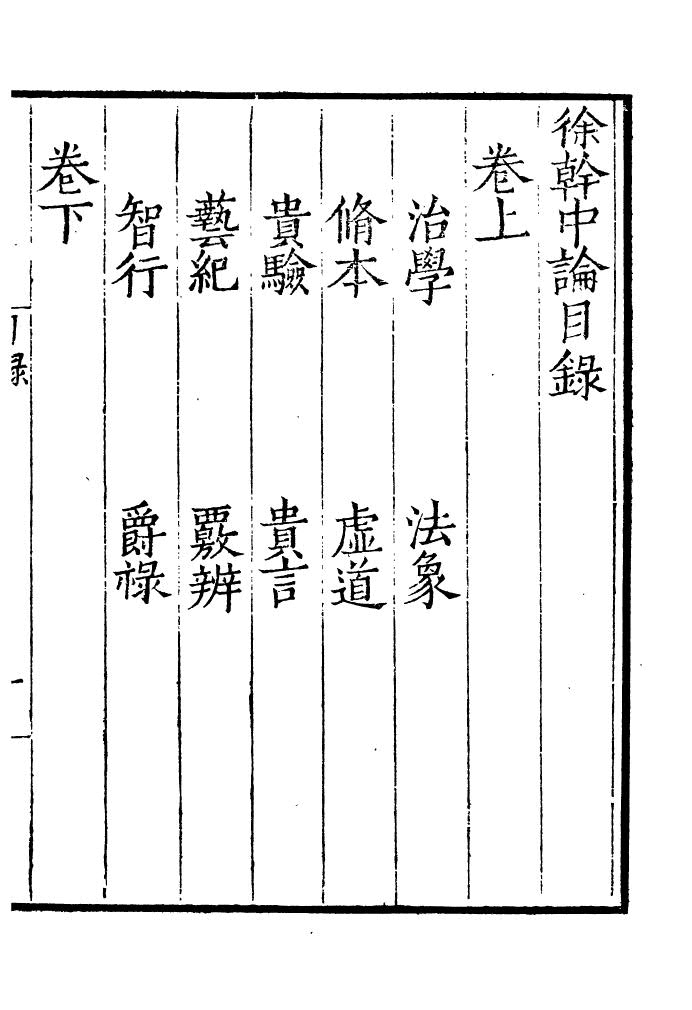 徐幹中論目錄
卷上
治學 法象
脩本 虛道
貴驗 貴言
藝紀 覈辨
智行 爵祿
卷下
目錄
一